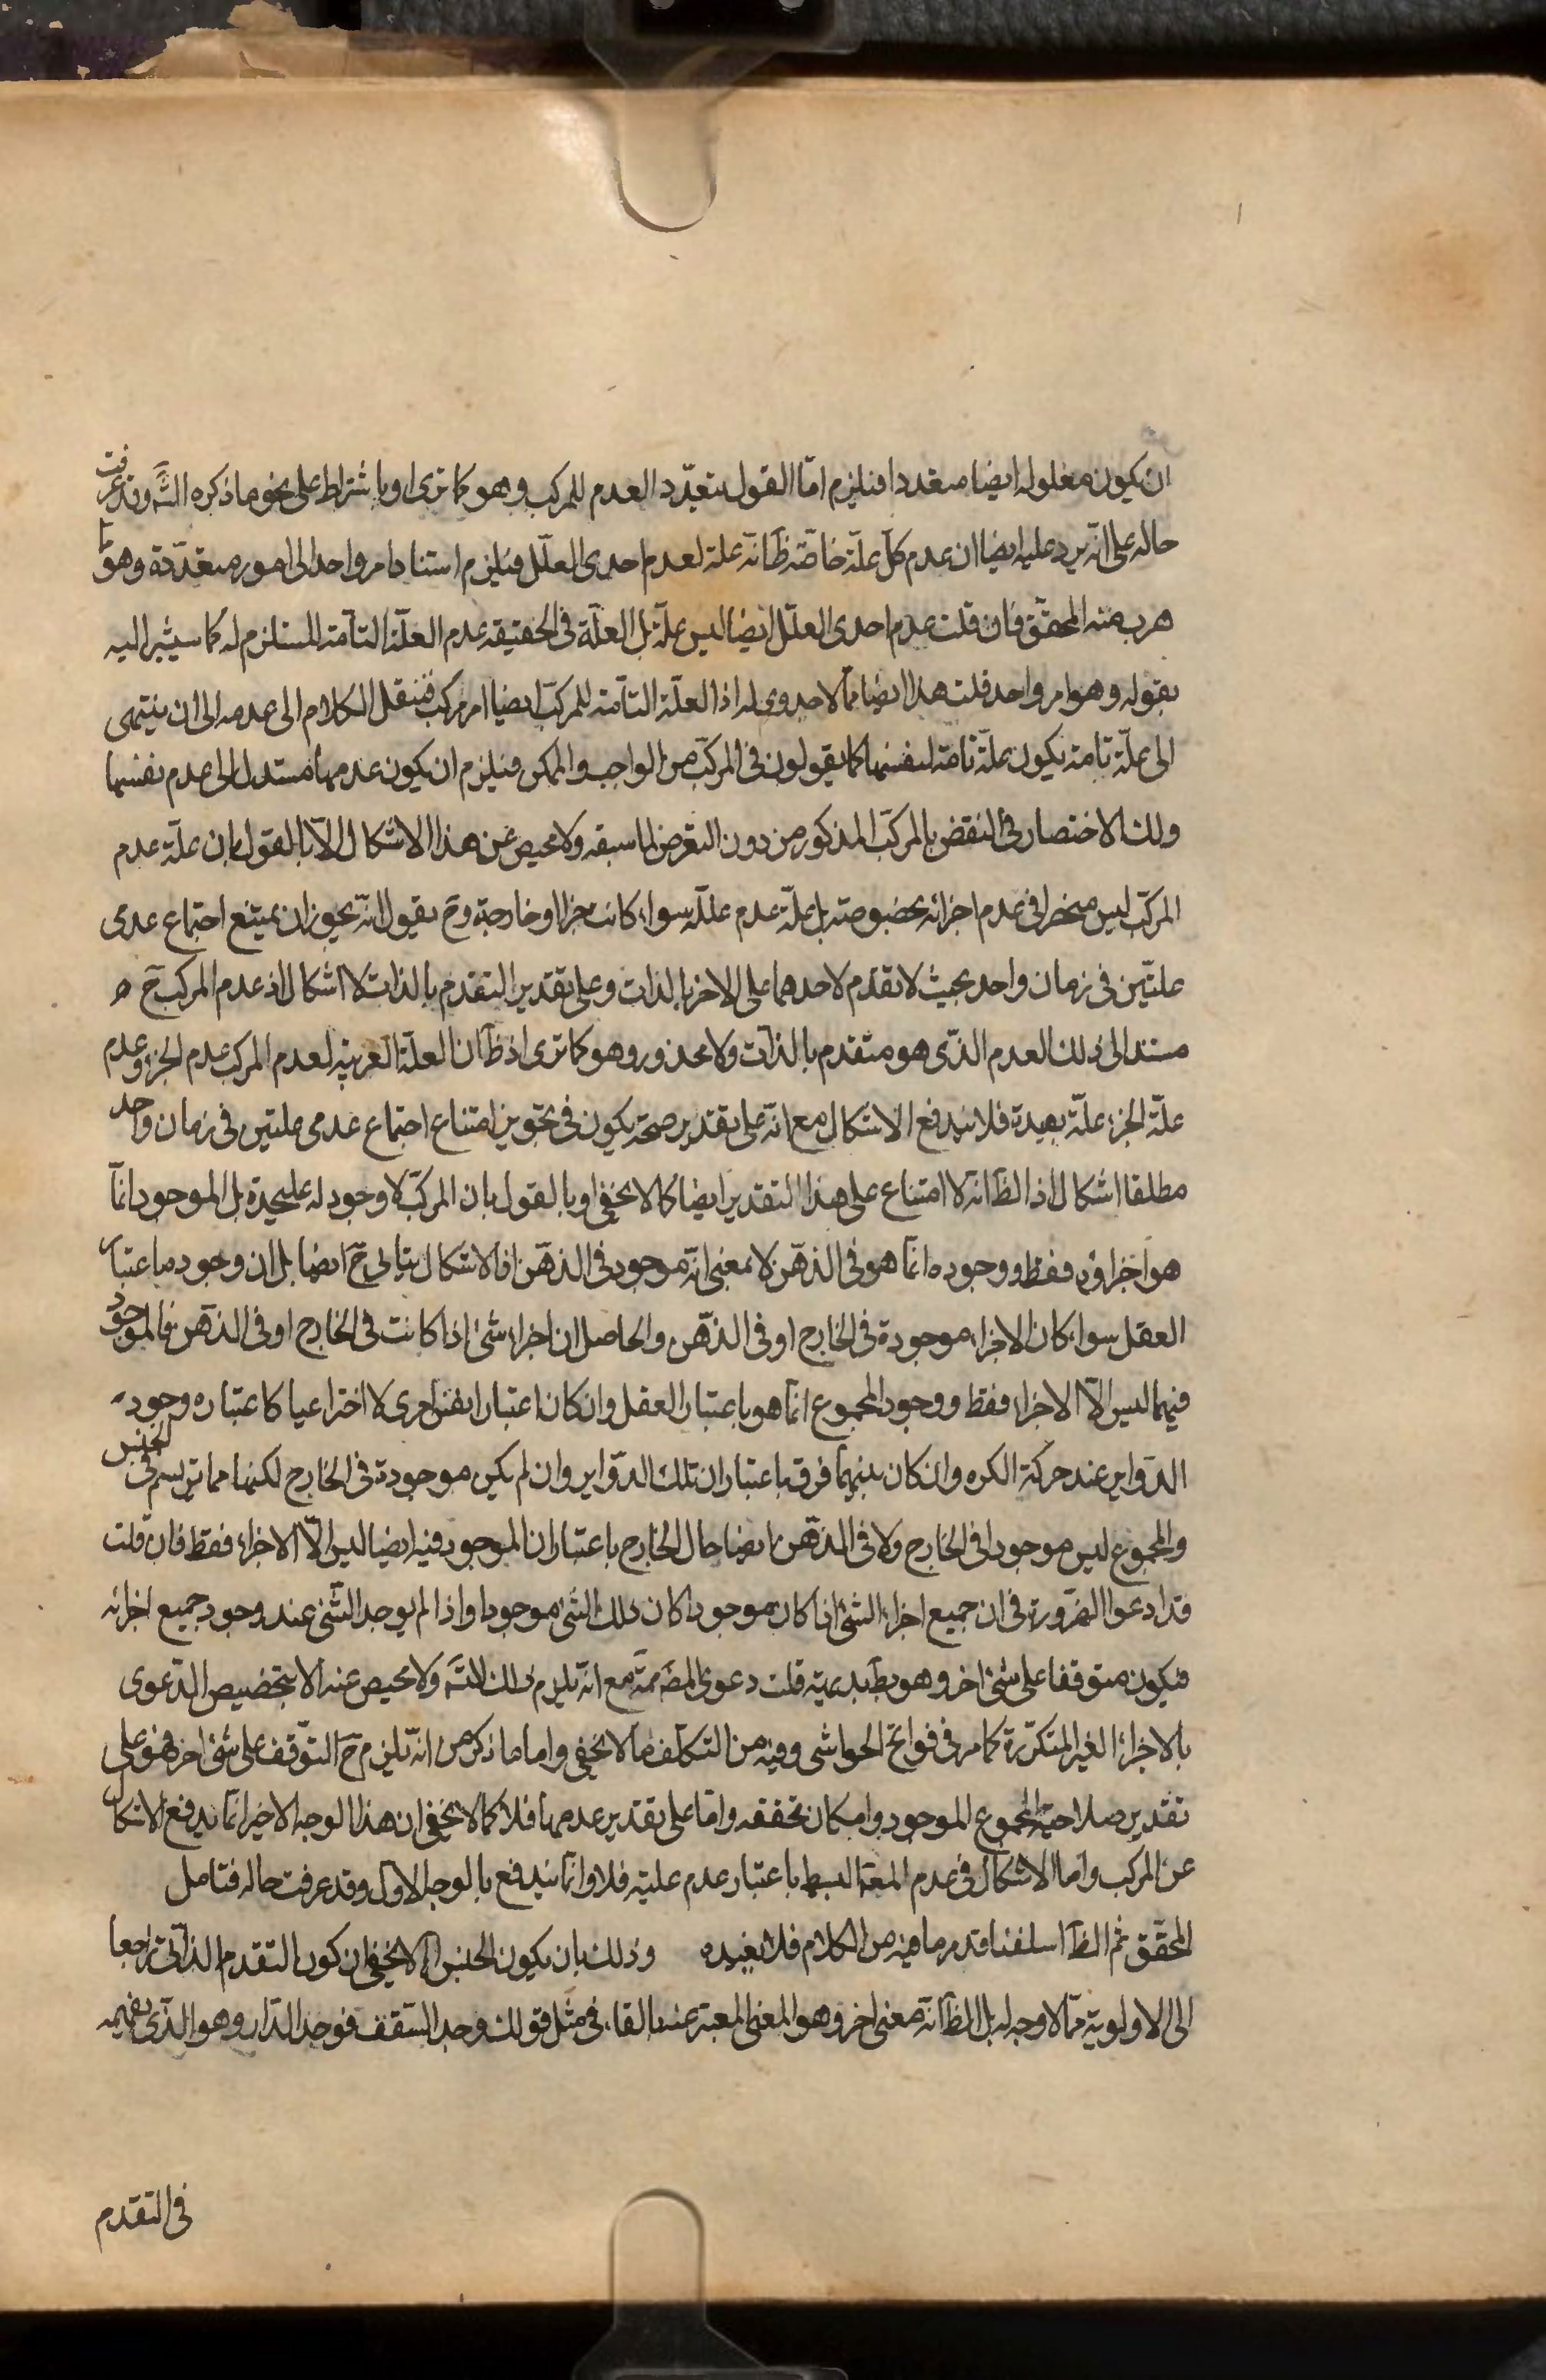 ان يكون معلوله ايضا متعددا فيلزم امّا القول بتعدّد العدم للمركب وهو كما ترى او باشتراط على نحو ما ذكره الشَّ وقد عرفت
حاله على انّه يرد عليه ايضا ان عدم كلّ علّة خاصّة ظَ انّه علة لعدم احدى العلّل فيلزم استناد امر واحد الى امور متعدّدة وهو ما
هرب منه المحقّق فان قلت عدم احدى العلّل ايضا ليس علّة بل العلّة فى الحقيقة عدم العلّة التّامّة المستلزم له كما سيشير اليه
بقوله وهو امر واحد قلت هذا ايضا ممّا لا جدوى له اذا العلّة التّامّة للمركّب ايضا امر مركب فننقل الكلام الى عدمه الى ان ينتهى
الى علّة تامة يكون علّة تامّة لنفسها كما يقولون فى المركّب من الواجب والممكن فيلزم ان يكون عدمها مستندا الى عدم نفسها
ولك الاختصار فى النقض بالمركّب المذكور من دون التعرض لما سبقه ولا محيص عن هذا الاشكال الّا بالقول بان علّة عدم
المركّب ليس منحصرا فى عدم اجزائه بخصوصه بل علّة عدم علله سواء كانت جزءا او خارجة وحَ يقول انّه يجوز ان يمتنع اجتماع عدمى
علتّين فى زمان واحد بحيث لا تقدّم لاحدهما على الاخر بالذات وعلى تقدير التقدم بالذات لا اشكال اذ عدم المركب حَ
مستند الى ذلك العدم الذّى هو متقدم بالذات ولا محذور وهو كما ترى اذ ظَ ان العلّة القريبة لعدم المركب عدم الجزء وعدم
علّة الجزء علّة بعيدة فلا يندفع الاشكال مع انّه على تقدير صحته يكون فى تجويز امتناع اجتماع عدمى علتين فى زمان واحد
مطلقا اشكال اذ الظَ انّه لا امتناع على هذا التقدير ايضا كما لا يخفى او بالقول بان المركّب لا وجود له عليحدة بل الموجود انّما
هو اجزاؤه فقط ووجوده انّما هو فى الذهن لا بمعنى انّه موجود فى الذهن اذ الاشكال يتاتى حَ ايضا بل ان وجوده باعتبار
العقل سواء كان الاجزاء موجودة فى الخارج او فى الذّهن والحاصل ان اجزاء شئ اذا كانت فى الخارج او فى الذهن فالموجود
فيهما ليس الّا الاجزاء فقط ووجود المجموع انّما هو باعتبار العقل وان كان اعتبارا نفس امرى لا اختراعيا كاعتباره وجود
الدّواير عند حركة الكره وان كان بينهما فرق باعتبار ان تلك الدّواير وان لم يكن موجودة فى الخارج لكنها مما ترتسم فى الحس
والمجموع ليس موجودا فى الخارج ولا فى الذهن ايضا حال الخارج باعتبار ان الموجود فيه ايضا ليس الّا الاجزاء فقط فان قلت
قد ادعوا الضّرورة فى ان جميع اجزاء الشئ اذا كان موجودا كان ذلك الشئ موجودا واذا لم يوجد الشّئ عند وجود جميع اجزائه
فيكون متوقفا على شئ اخر وهو بطَ بديهة قلت دعوى الضّرَ ممّة مع انّه يلزم ذلك التسَ ولا محيص عنه الا بتخصيص الدّعوى
بالاجزاء الغير المتكرّرة كما مر فى فواتح الحواشى وفيه من التكلّف ما لا يخفى واما ما ذكر من انّه يلزم حَ التّوقف على شئ اخر فهو على
تقدير صلاحية المجموع الموجود وامكان تحققه وامّا على تقدير عدمها فلا كما لا يخفى ان هذا الوجه الاخير انّما يدفع الاشكال
عن المركب وامّا الاشكال فى عدم المعَ البسط باعتبار عدم علية فلا وانّما يندفع بالوجه الاول وقد عرفت حاله فتامل
المحقّق ثم الظَ اسلفنا قد مر ما فيه من الكلام فلا نعيده وذلك بان يكون الجنس اه لا يخفى ان كون التقدم الذاتى راجعا
الى الاولوية ممّا لا وجه له بل الظَ انّه معنى اخر وهو المعنى المعبّر عنه بالفاء فى مثل قولك وجد السّقف فوجد الدّار وهو الذّى يفهم
فى التقدم